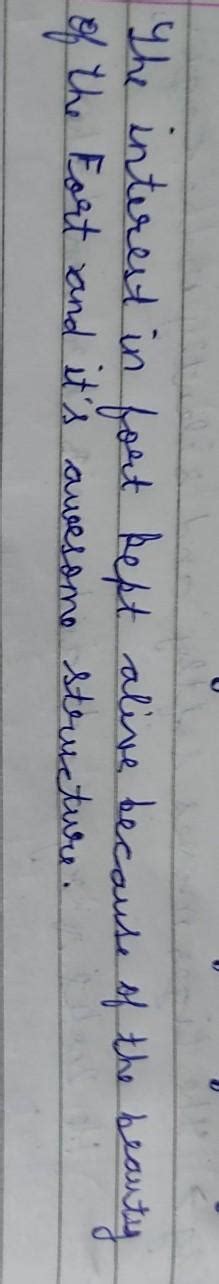 The interest in fort kept alive because of the beauty
of the Fort and it's awesome structure.